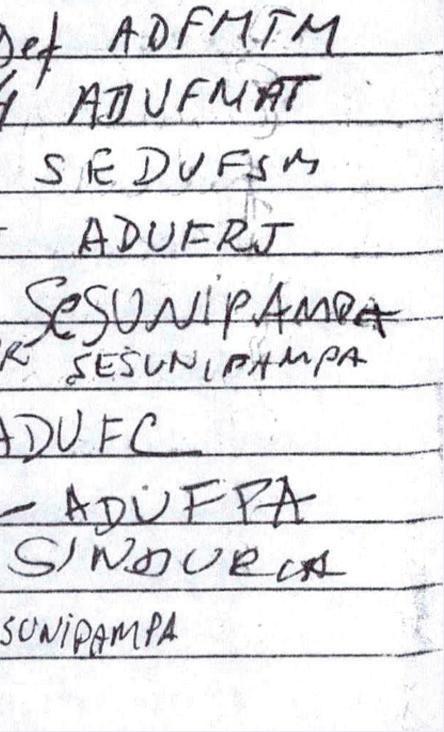 Def ADFMTM
ADUFMAT
SEDUFSM
ADUFRJ
SeSUNIPAMPA
SESUNIPAMPA
ADUFC
- ADUFPA
SINDURCA
SUNIPAMPA